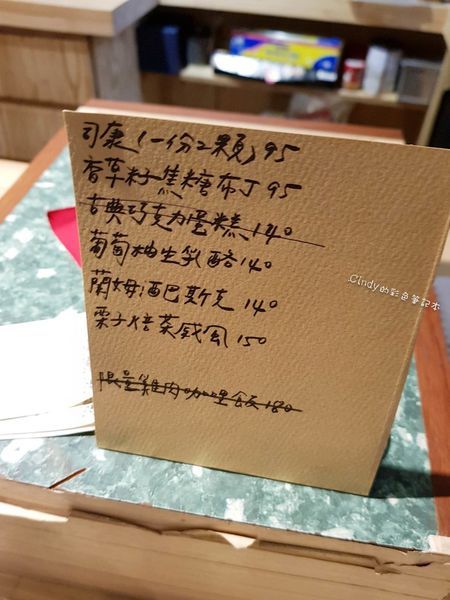 司康(一份2顆)95
香草籽焦糖布丁95
古典巧克力蛋糕140
葡萄柚生乳酪140
蘭姆酒巴斯克140
栗子焙茶戚風150
限量雞肉咖哩飯180
Cindy的彩色筆記本